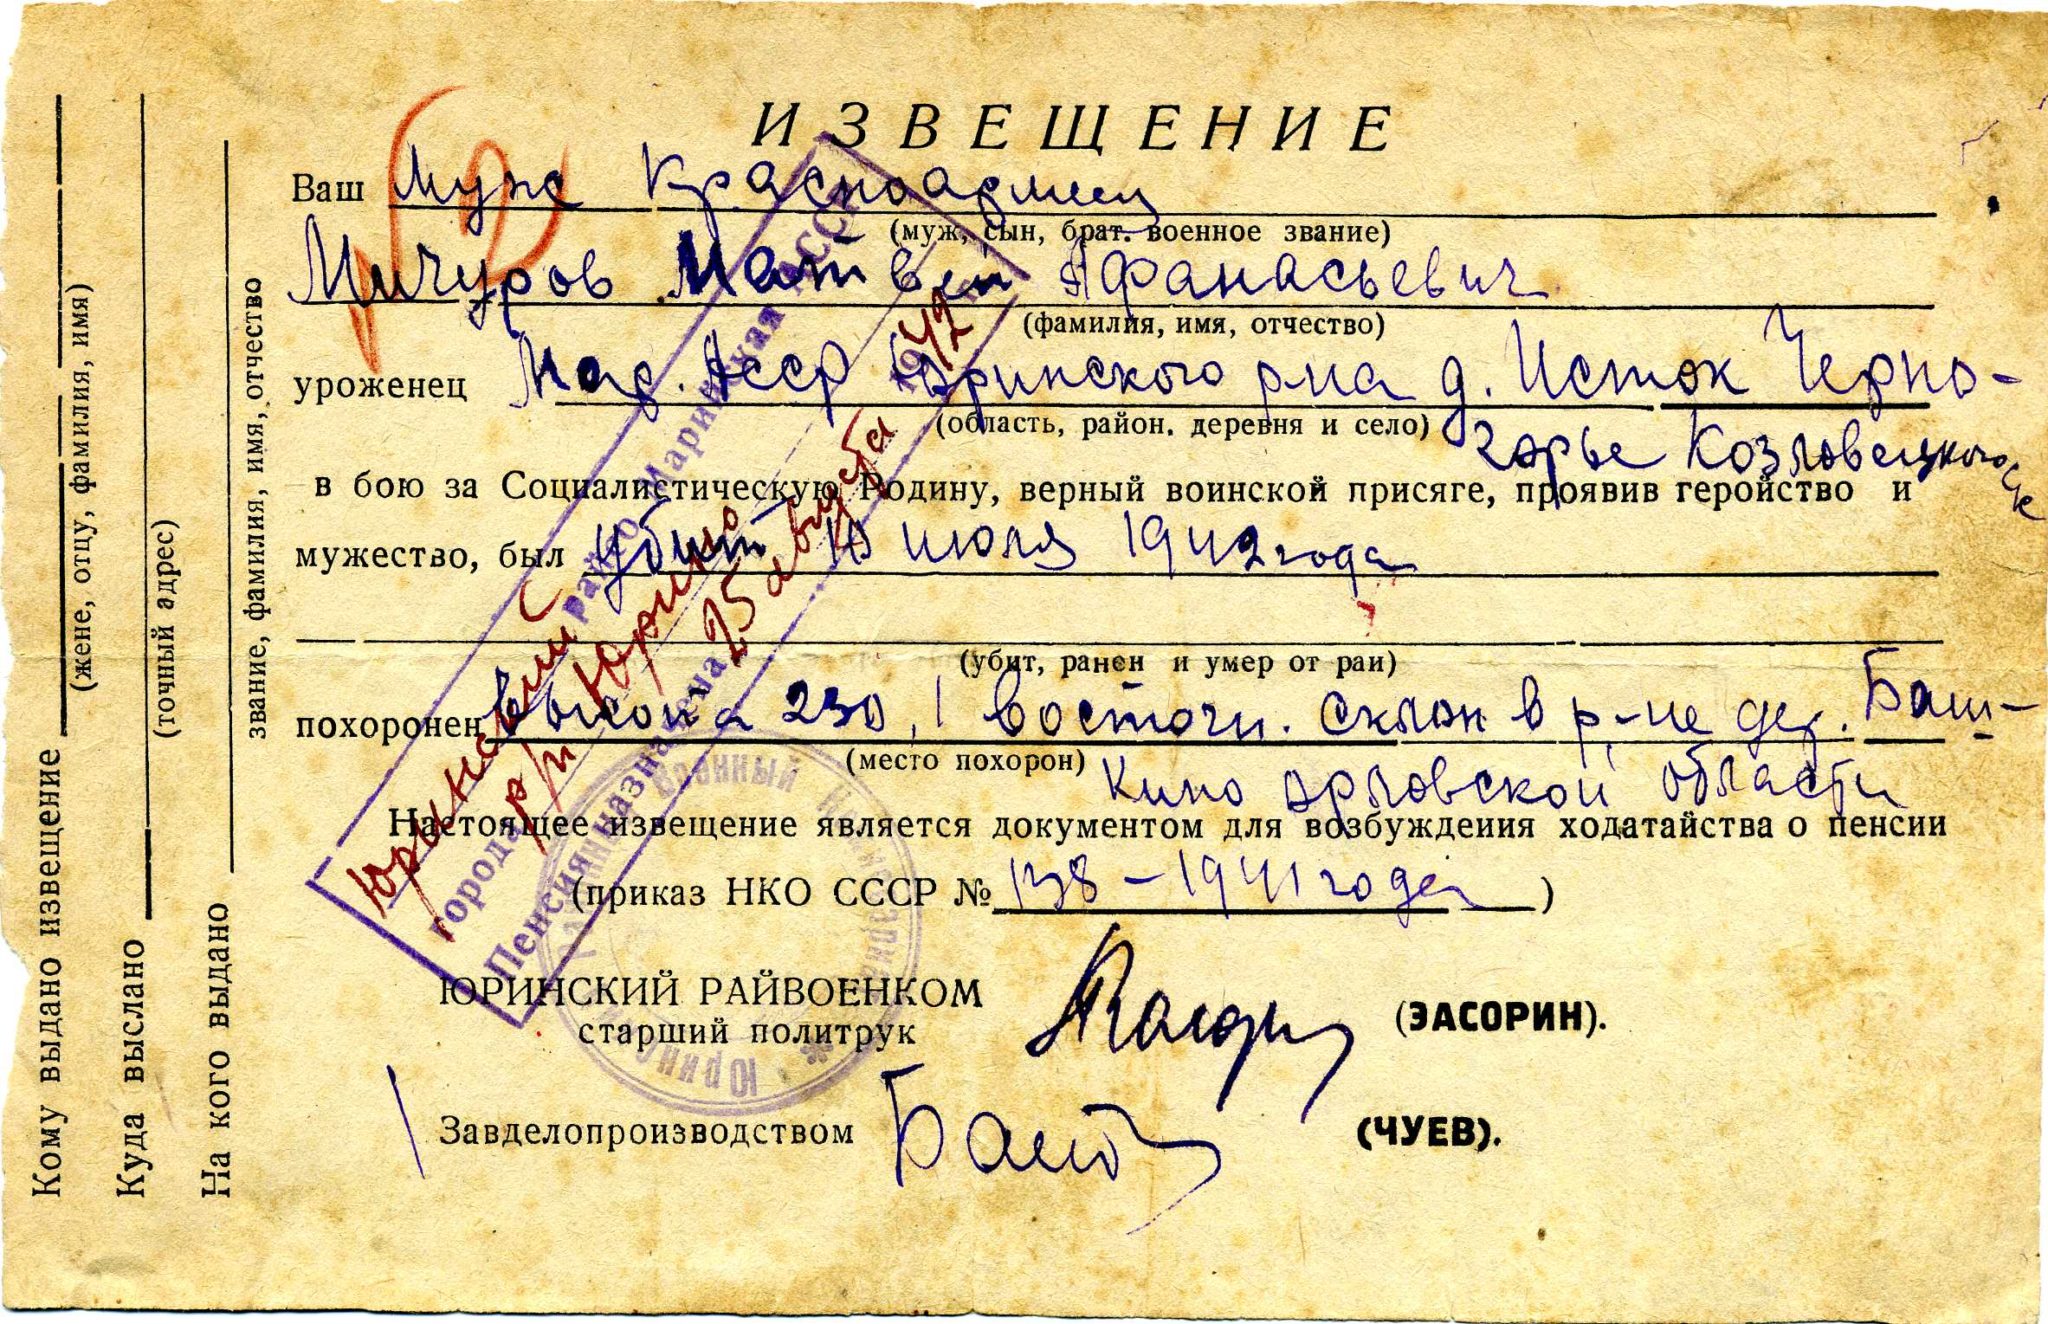 ИЗВЕЩЕНИЕ
Ваш муж Красноармеец
(муж, сын, брат. военное звание)
Мичуров Матвей Афанасьевич
(фамилия, имя, отчество)
уроженец Мар. Асср Юринского р-на д. Исток Черно-
(область, район. деревня и село)
горье Козловецкого с/с
в бою за Социалистическую Родину, верный воинской присяге, проявив геройство и
мужество, был убит июля 1942 года
(убит, ранен и умер от ран)
похоронен высота 230,1 восточн. склон в р-не дер. Баш-
(место похорон)
кино орловской области
Настоящее извещение является документом для возбуждения ходатайства о пенсии
(приказ НКО СССР № 138-1941 года)
ЮРИНСКИЙ РАЙВОЕНКОМ
старший политрук
(ЗАСОРИН).
Завделопроизводством
(ЧУЕВ).
Кому выдано извещение
(жене, отцу, фамилия, имя)
Куда выслано
(точный адрес)
На кого выдано
звание, фамилия, имя, отчество
Юринский райсо Марийская АССР
города р/п Юрино
Пенсия назначена 25 августа 1942
Юринский Районный Военный Комиссариат